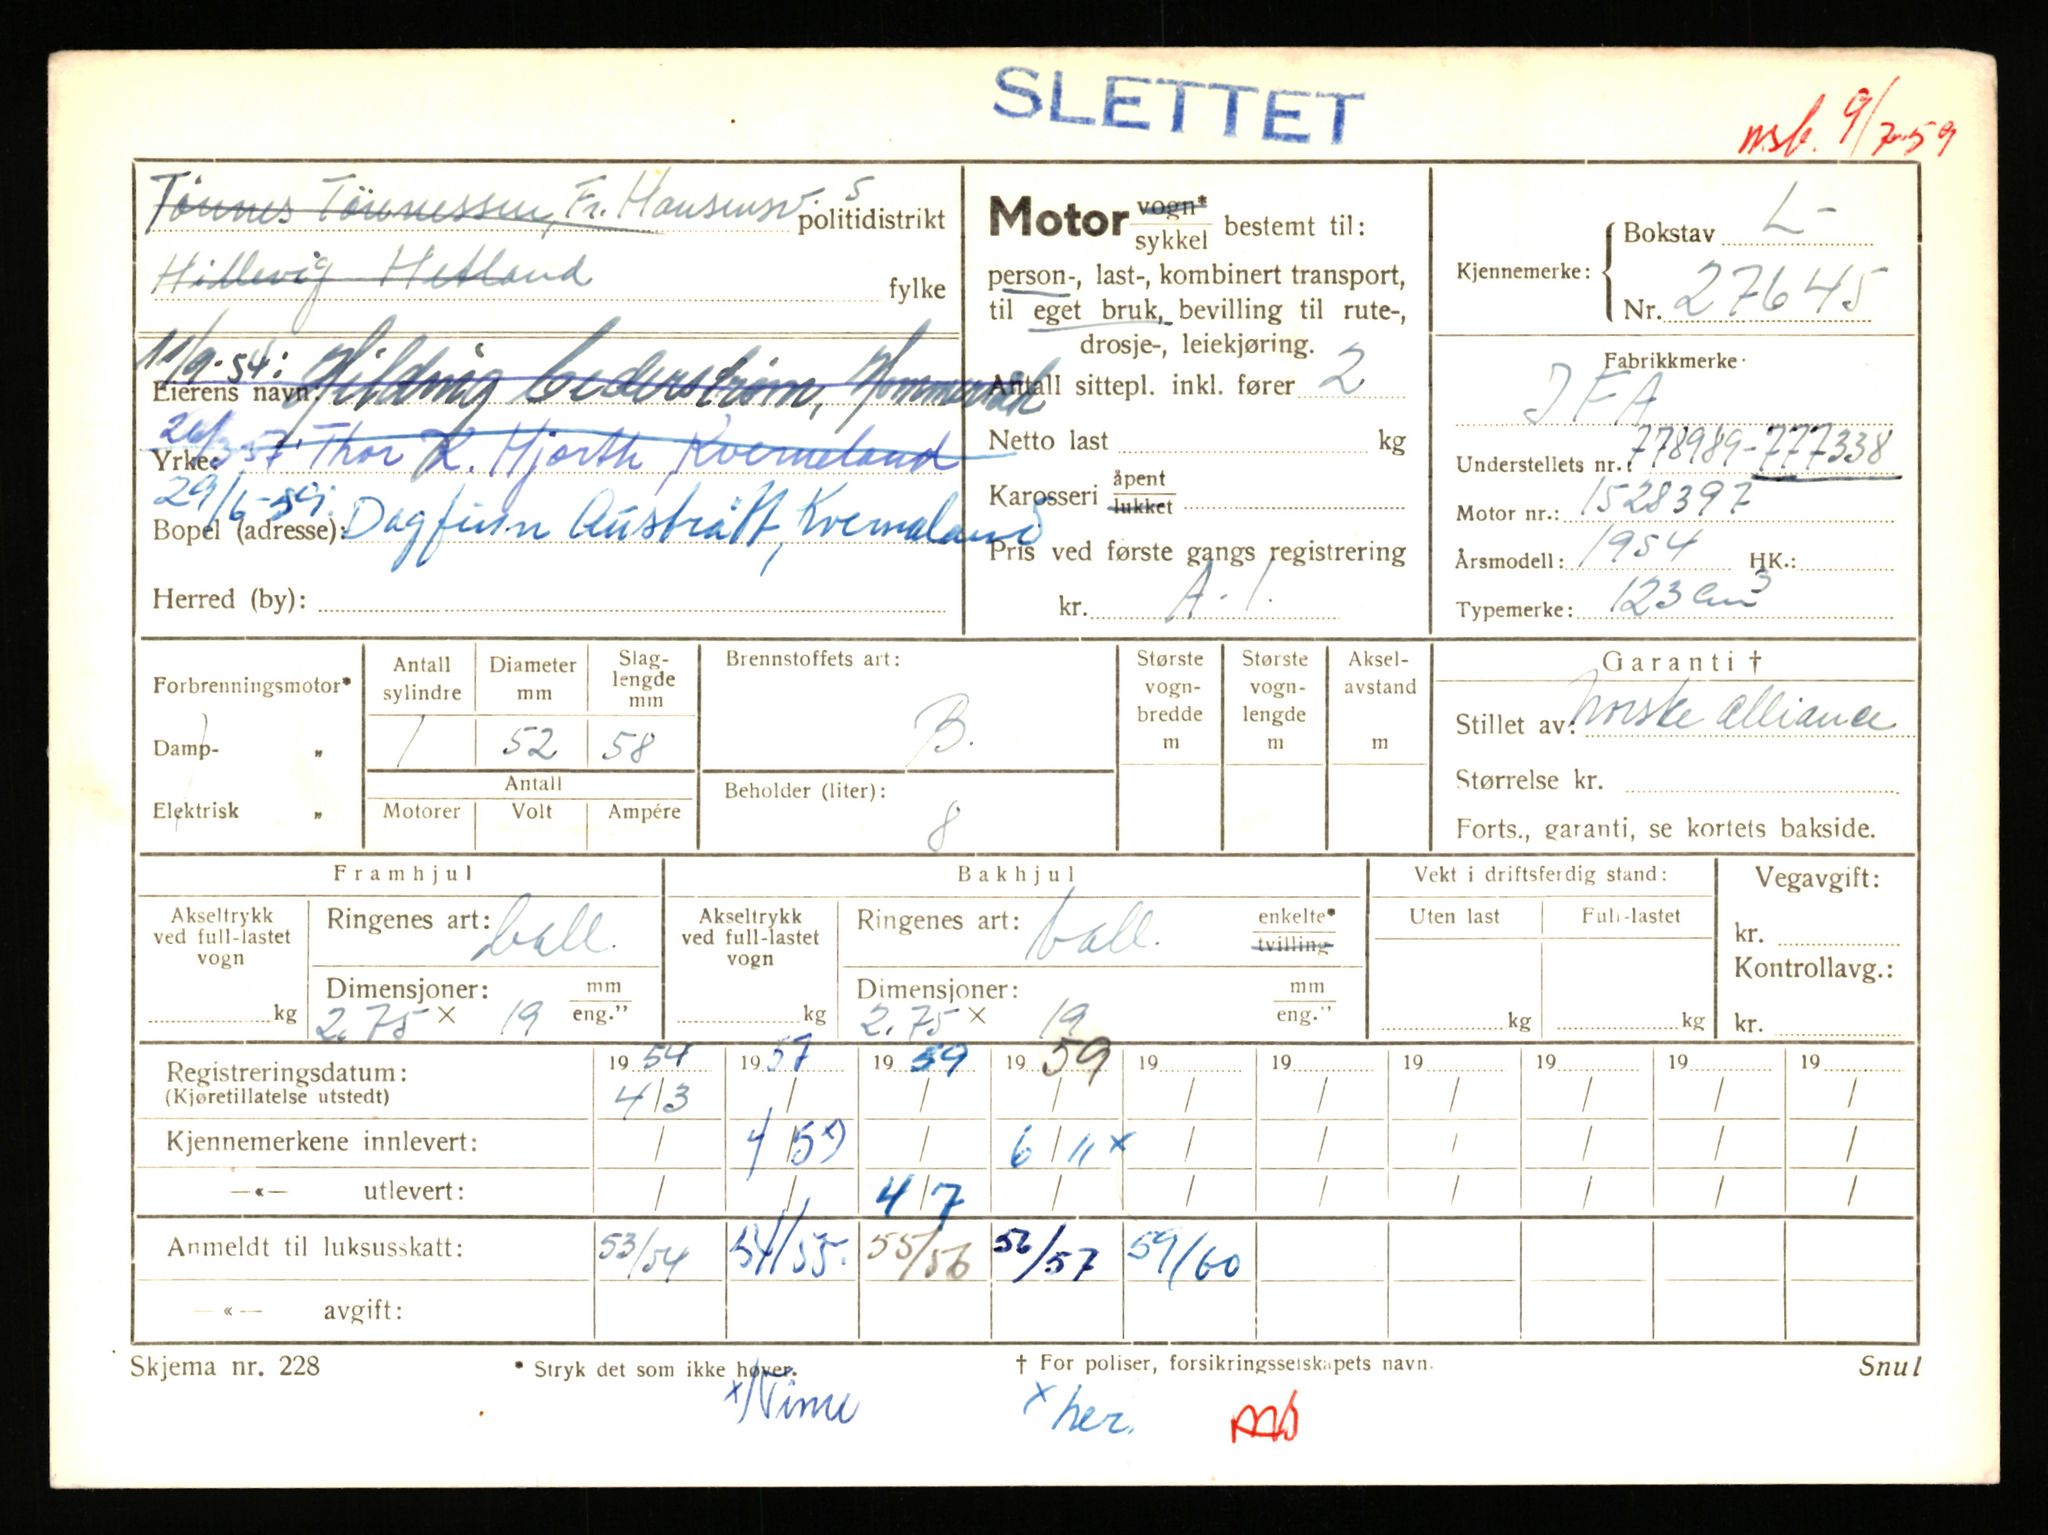 SLETTET
msb. 9/7-59
Tönnes Tönnessen, Fr. Hansensv. 5 politidistrikt
Hillevig Hetland fylke
11/9-54: Hilding Cederstrøm,
Eierens navn:
Thor K. Hjorth, Kverneland
Yrke:
29/6-59: Dagfinn Austrått, Kvernaland
Bopel (adresse):
Herred (by):
Motor vogn* sykkel bestemt til:
person-, last-, kombinert transport,
til eget bruk, bevilling til rute-,
drosje-, leiekjøring.
Antall sittepl. inkl. fører 2
Netto last kg
Karosseri åpent lukket
Pris ved første gangs registrering
kr. A. 1.
Kjennemerke: Bokstav L-
Nr. 27645
Fabrikkmerke
JFA
Understellets nr. 778989-777338
Motor nr.: 1528397
Årsmodell: 1954 HK.:
Typemerke: 123 cm³
Forbrenningsmotor*
Damp- „
Elektrisk „
Antall sylindre Diameter mm Slag-lengde mm
1 52 58
Antall
Motorer Volt Ampére
Brennstoffets art:
B.
Beholder (liter):
8
Største vogn-bredde m
Største vogn-lengde m
Aksel-avstand m
Garanti †
Stillet av: Norske Alliance
Størrelse kr.
Forts., garanti, se kortets bakside.
Framhjul
Akseltrykk ved full-lastet vogn
kg
Ringenes art: ball.
Dimensjoner: mm eng.”
2.75 × 19
Bakhjul
Akseltrykk ved full-lastet vogn
kg
Ringenes art: ball. enkelte* tvilling
Dimensjoner: mm eng.”
2.75 × 19
Vekt i driftsferdig stand:
Uten last Full-lastet
kg kg
Vegavgift:
kr.
Kontrollavg.:
kr.
Registreringsdatum: 1954 1957 1959 1959 19 19 19 19 19 19
(Kjøretillatelse utstedt) 4/3 / / / / / / / / /
Kjennemerkene innlevert: / / / 6/11 x / / / / / /
—«— utlevert: / / 4/7 / / / / / / /
Anmeldt til luksusskatt: 53/54 54/55. 55/56 56/57 59/60
—«— avgift:
Skjema nr. 228 * Stryk det som ikke høver. † For poliser, forsikringsselskapets navn. Snul
x her.